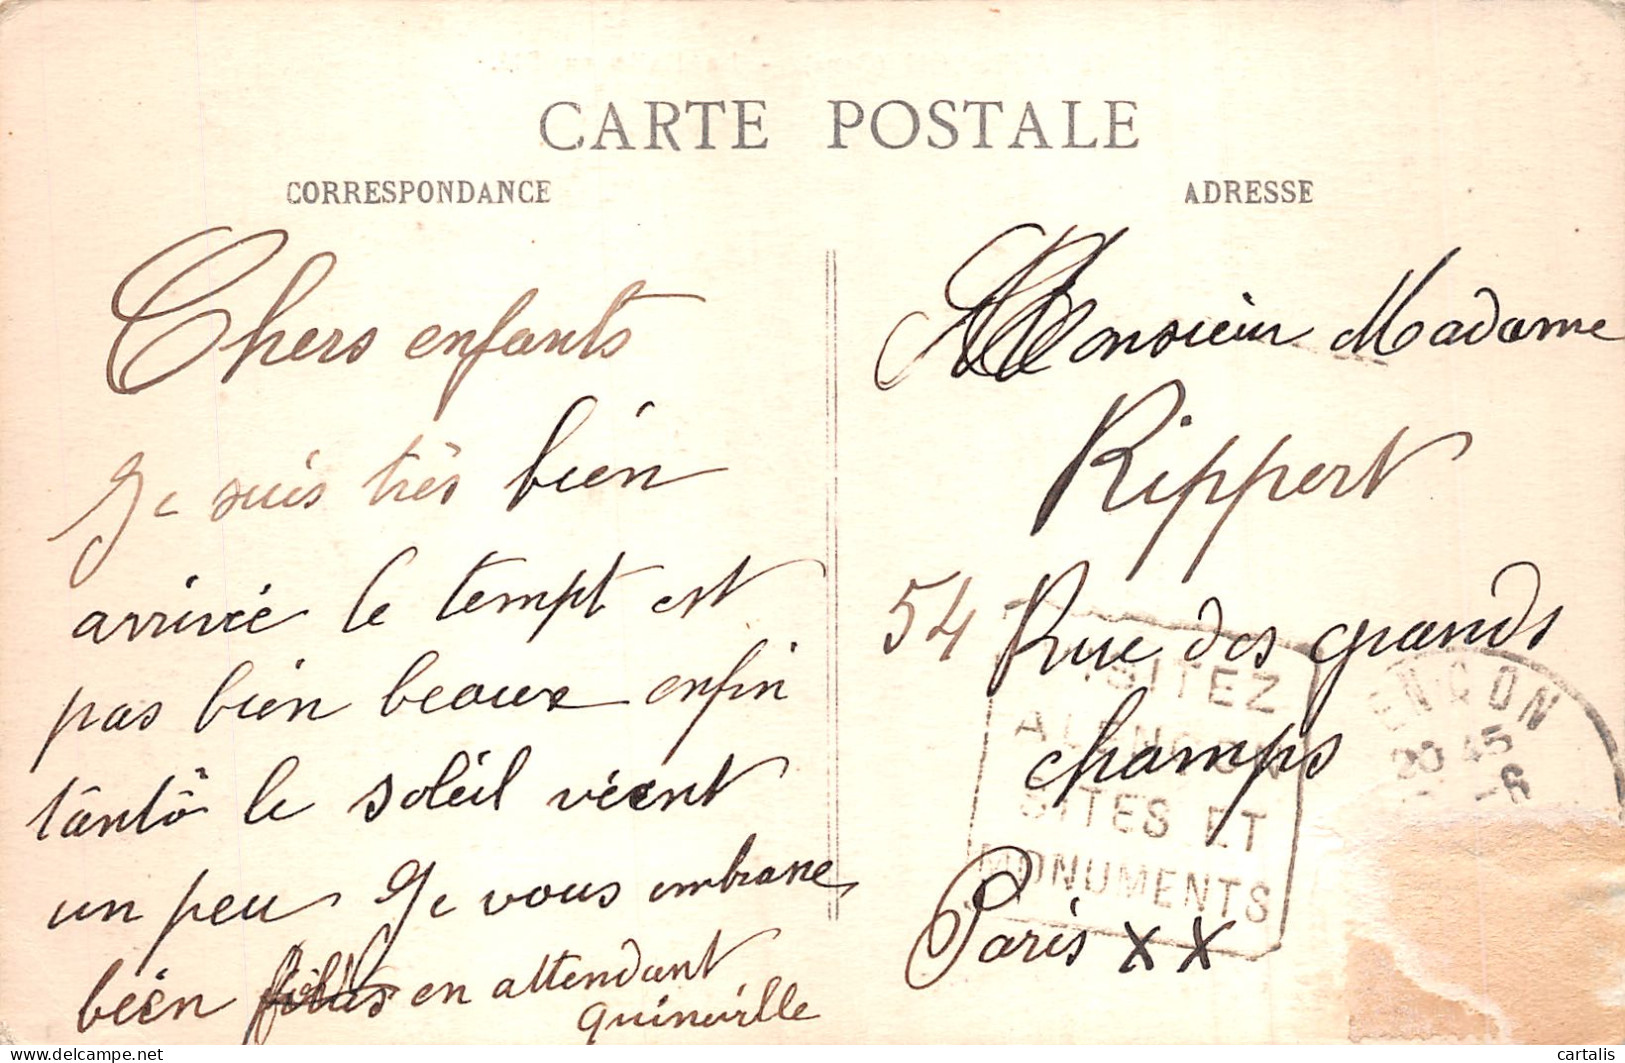 CARTE POSTALE
CORRESPONDANCE
Chers enfants
Je suis très bien
arrivée le tempt est
pas bien beaux enfin
tântô le soleil vient
un peu Je vous embrasse
bien en attendant
ADRESSE
Monsieur Madame
Rippert
54 Rue des grands
champs
Paris XX
VISITEZ
ALENÇON
SITES ET
MONUMENTS
ENÇON
20 45
-6
delcampe.net
cartalis